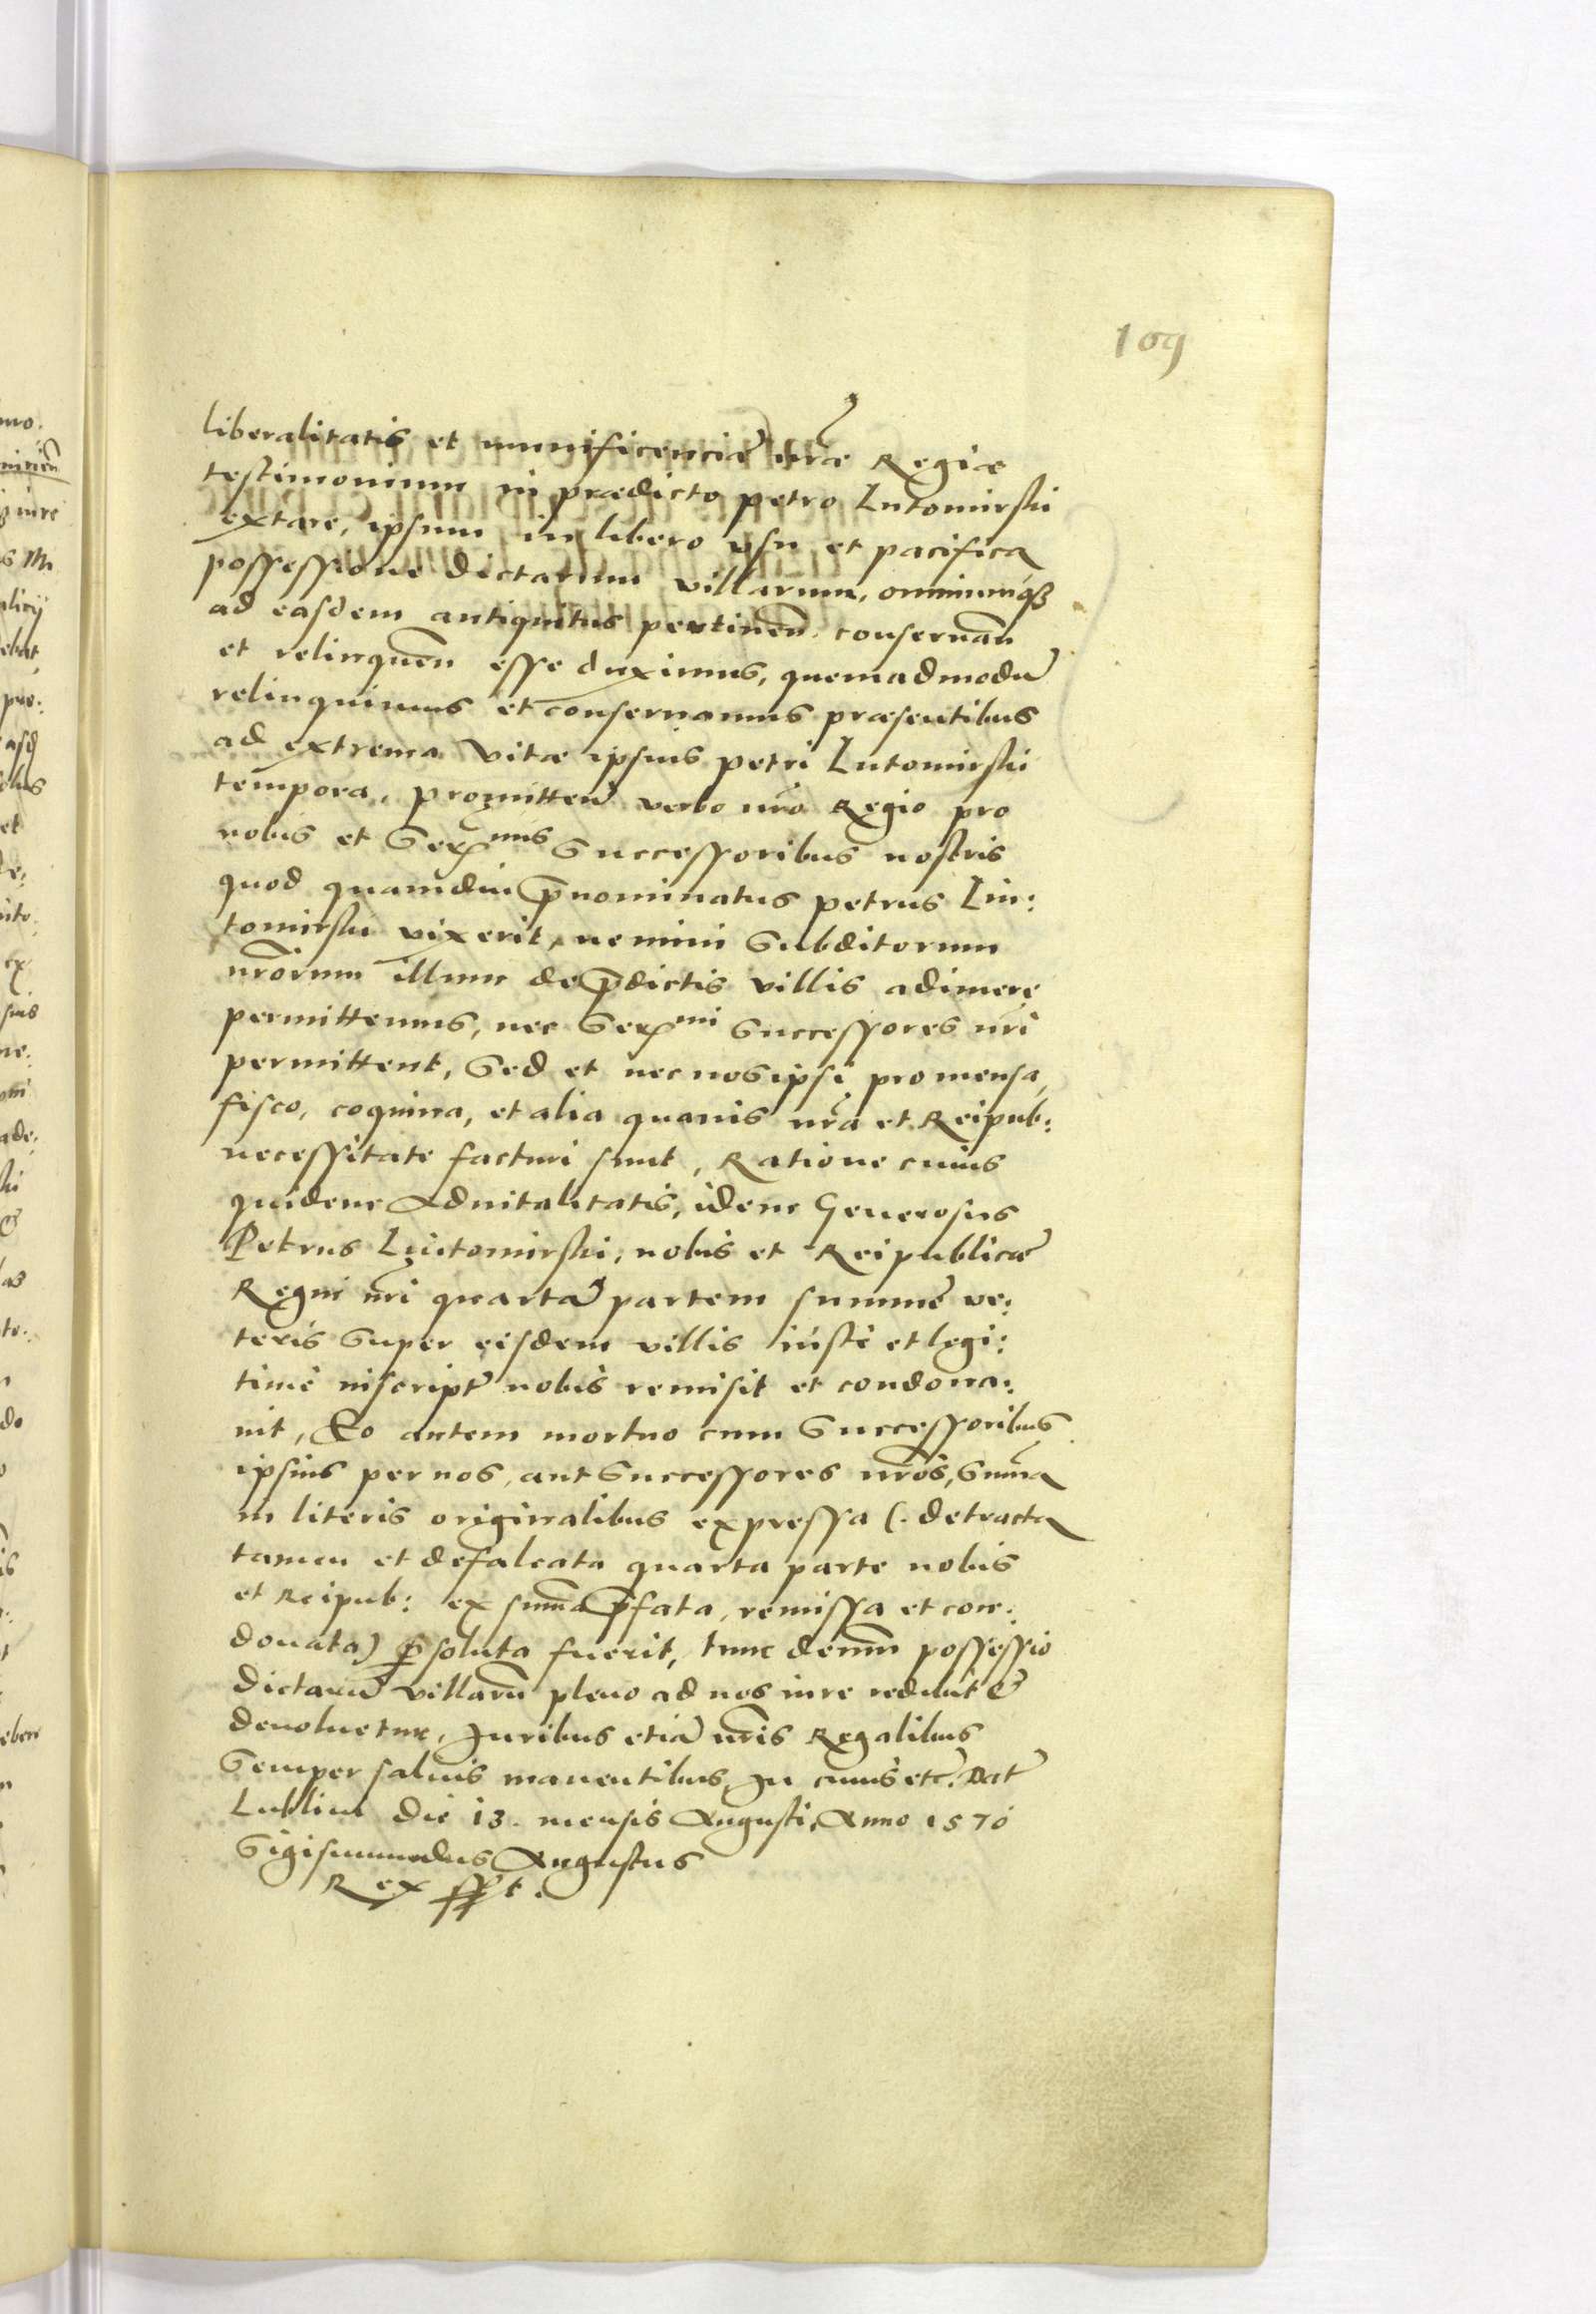 109
liberalitatis et munificenciæ nr̃æ Regiæ
testimonium in prædicto petro Lutomirski
extare, ipsum in libero vsu et pacifica
possessione dictarum villarum, omniumq₃
ad easdem antiquitus pertineñ. conseruañ
et relinqueñ esse duximus, quemadmodũ
relinquimus et conseruamus præsentibus
ad extrema vitæ ipsius petri Lutomirski
tempora, promitteñ verbo nr̃o Regio pro
nobis et Serᵐⁱˢ Successoribus nostris
quod quamdiu p̄nominatus petrus Lu:
tomirski vixerit, nemini Subditorum
nr̃orum illum de p̄dictis villis adimere
permittemus, nec Serᵐⁱ Successores nr̃i
permittent, Sed et nec nos ipsi pro mensa,
fisco, coquina, et alia quauis nr̃a et Reipub:
necessitate facturi sunt, Ratione cuius
quidem Aduitalitatis, idem Generosus
Petrus Lutomirski, nobis et Reipublicæ
Regni nr̃i quartã partem summe ve:
teris Super eisdem villis iuste et legi:
time inscript̃ nobis remisit et condona:
uit, Eo autem mortuo cum Successoribus
ipsius per nos, aut Successores nr̃os, Sum̃a
in literis originalibus expressa (. detracta
tamen et defalcata quarta parte nobis
et Reipub: ex sum̃a p̄fata, remissa et con:
donata) p̱soluta fuerit, tunc demũ possessio
dictarũ villarũ pleno ad nos iure redibit &
deuoluetur, Juribus etiã nr̃is Regalibus
Semper saluis manentibus, In cuius etc̃. Dat̃
Lublini die 13. mensis Augusti, Anno 1570
Sigismundus Augustus
Rex sspt.